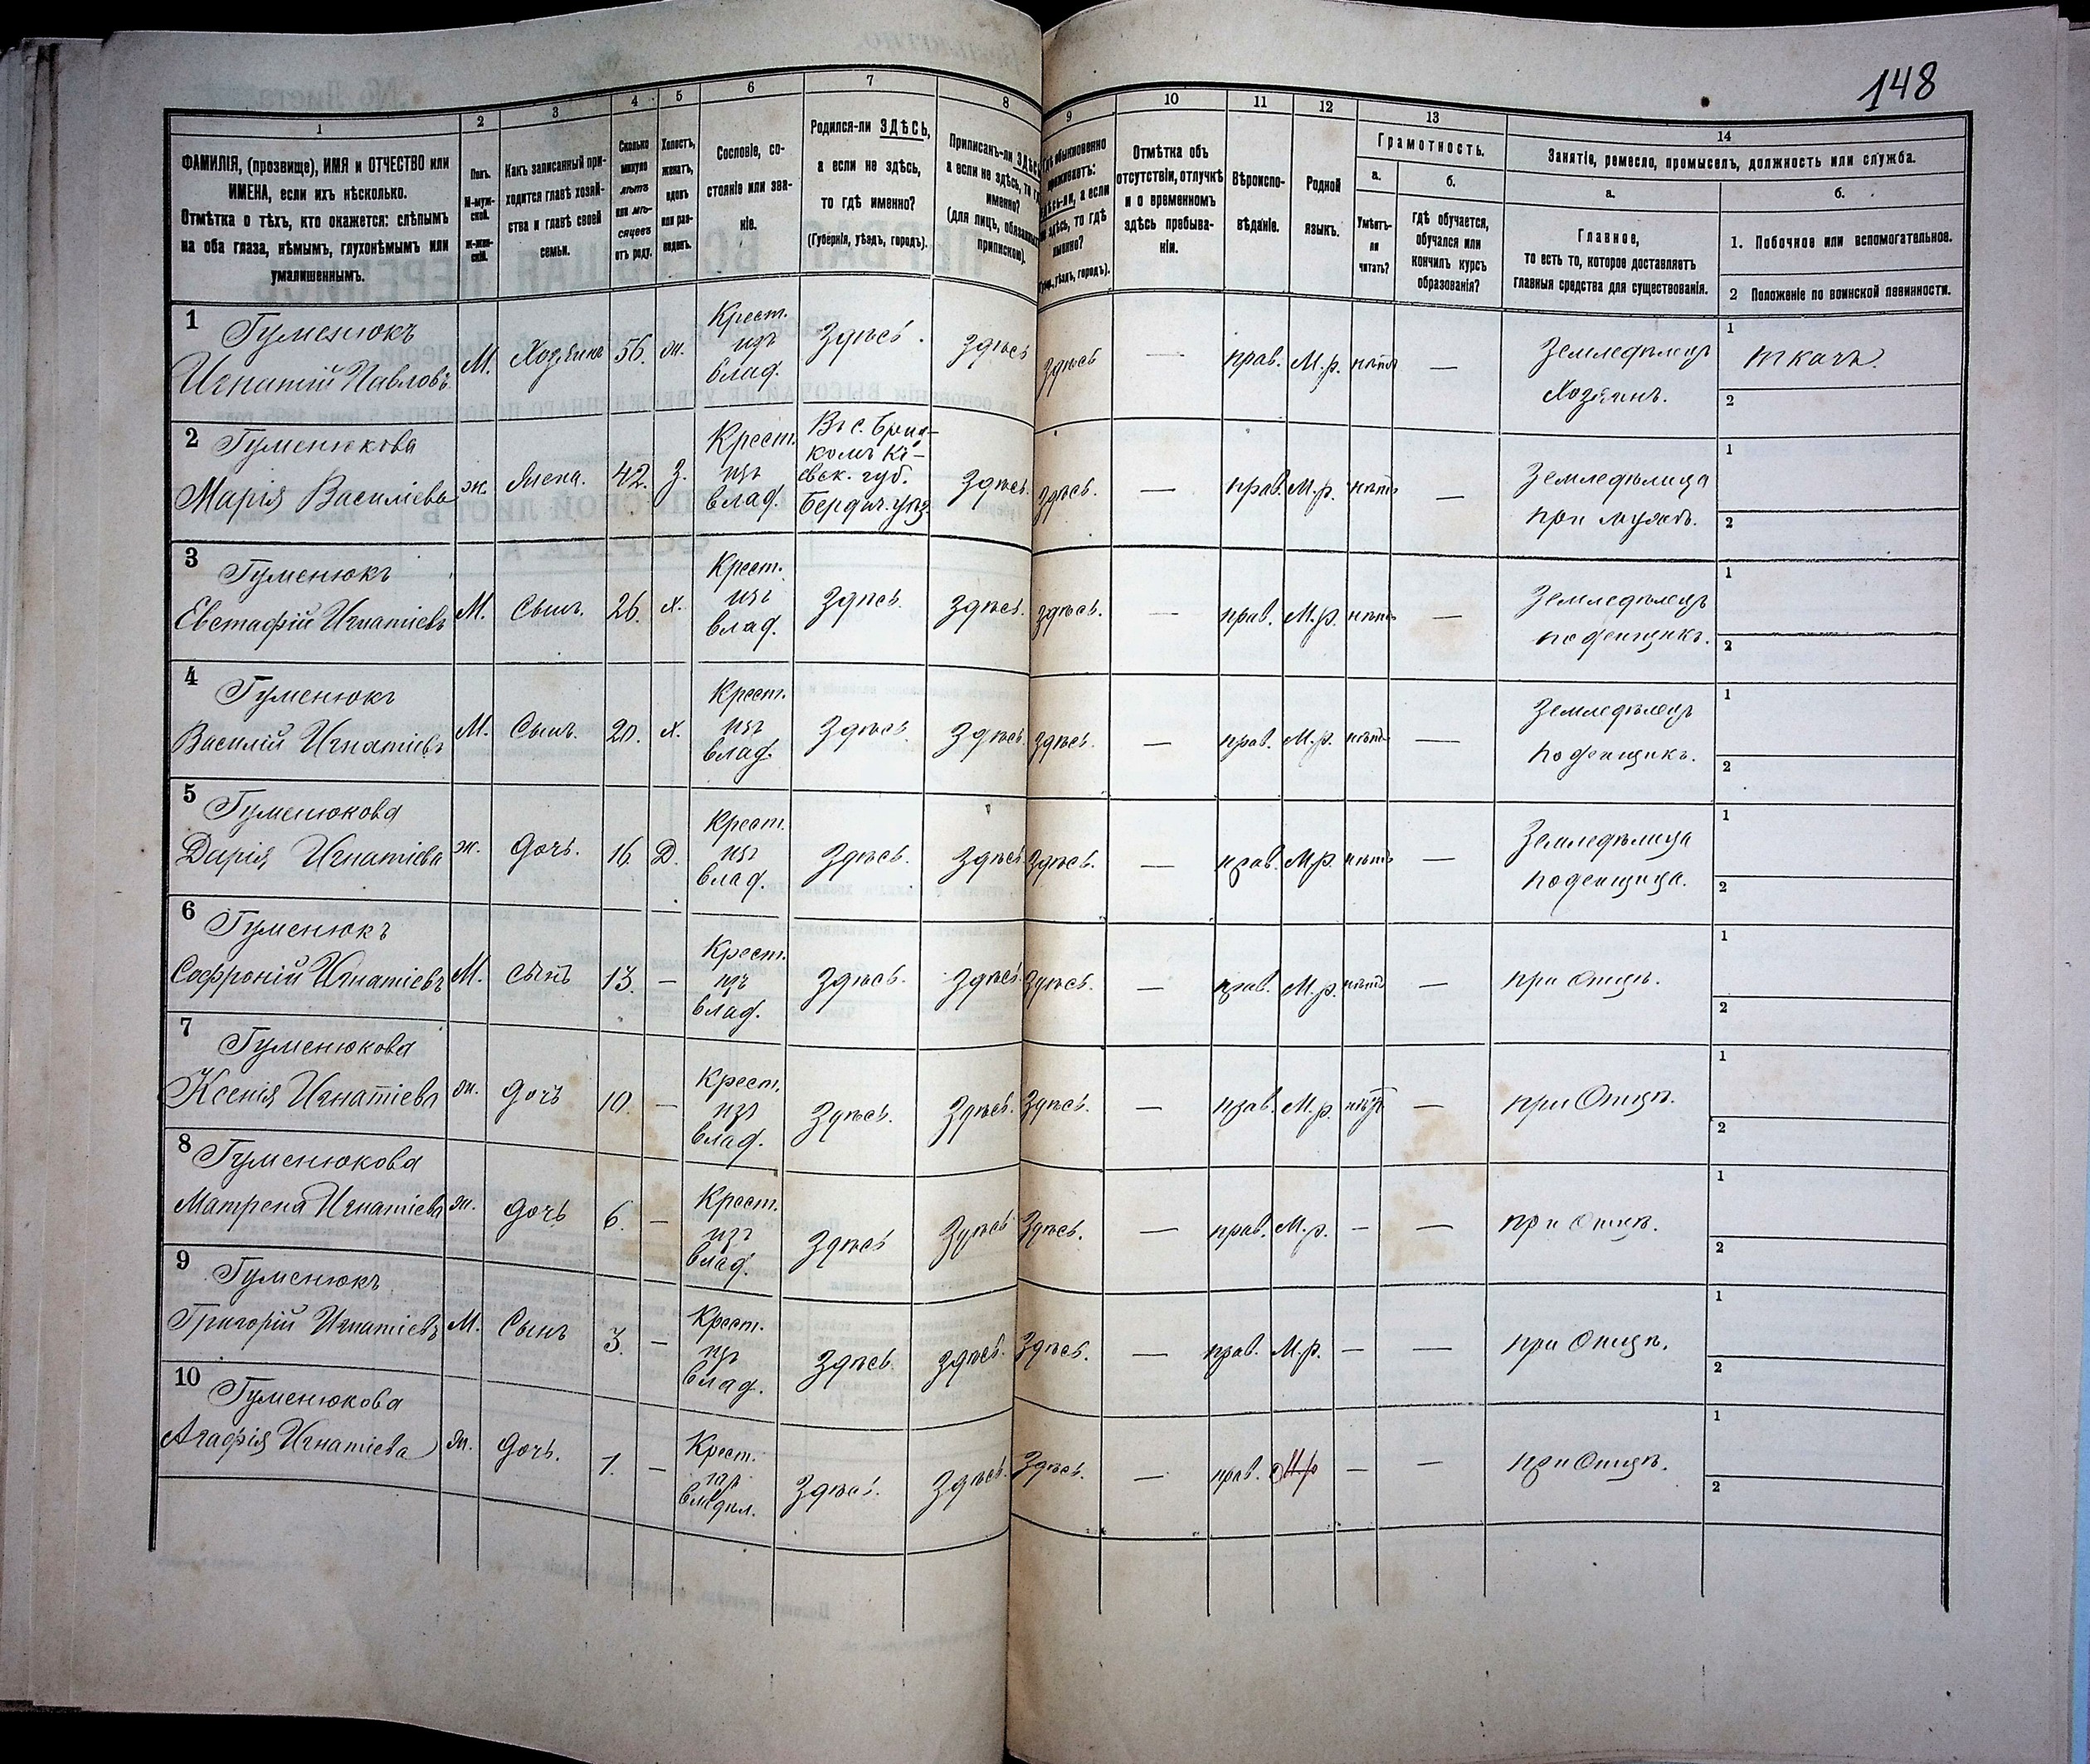 148
1
ФАМИЛІЯ, (прозвище), ИМЯ и ОТЧЕСТВО или
ИМЕНА, если ихъ нѣсколько.
Отмѣтка о тѣхъ, кто окажется: слѣпымъ
на оба глаза, нѣмымъ, глухонѣмымъ или
умалишеннымъ.
2
Полъ.
М-муж-
ской.
Ж-жен-
скій.
3
Какъ записанный при-
ходится главѣ хозяй-
ства и главѣ своей
семьи.
4
Сколько
минуло
лѣтъ
или мѣ-
сяцевъ
отъ роду.
5
Холостъ,
женатъ,
вдовъ
или раз-
веденъ.
6
Сословіе, со-
стояніе или зва-
ніе.
7
Родился-ли ЗДѢСЬ,
а если не здѣсь,
то гдѣ именно?
(Губернія, уѣздъ, городъ).
8
Приписанъ-ли ЗДѢСЬ,
а если не здѣсь, то гдѣ
именно?
(для лицъ, обязанныхъ
припискою).
9
Гдѣ обыкновенно
проживаетъ:
здѣсь-ли, а если
не здѣсь, то гдѣ
именно?
(Губ., уѣздъ, городъ).
10
Отмѣтка объ
отсутствіи, отлучкѣ
и о временномъ
здѣсь пребыва-
ніи.
11
Вѣроиспо-
вѣданіе.
12
Родной
языкъ.
13
Грамотность.
а.
Умѣетъ-
ли
читать?
б.
гдѣ обучается,
обучался или
кончилъ курсъ
образованія?
14
Занятіе, ремесло, промыселъ, должность или служба.
а.
Главное,
то есть то, которое доставляетъ
главныя средства для существованія.
б.
1. Побочное или вспомогательное.
2 Положеніе по воинской повинности.
1 Гуменюкъ
Игнатій Павловъ
М. Хозяинъ 56. ж.
Крест.
изъ
влад.
Здѣсь. Здѣсь Здѣсь — прав. М.р. нѣтъ —
Земледѣлецъ
Хозяинъ.
1 ткачъ.
2
2 Гуменюкова
Марія Василіева
ж. Жена. 42. З.
Крест.
изъ
влад.
Въ с.
Кі-
евск. губ.
Бердич. уѣз.
Здѣсь. Здѣсь. — прав. М.р. нѣтъ —
Земледѣлица
при мужѣ.
1
2
3 Гуменюкъ
Евстафій Игнатіевъ
М. Сынъ. 26. х.
Крест.
изъ
влад.
Здѣсь. Здѣсь. Здѣсь. — прав. М.р. нѣтъ —
Земледѣлецъ
поденщикъ.
1
2
4 Гуменюкъ
Василій Игнатіевъ
М. Сынъ. 20. х.
Крест.
изъ
влад.
Здѣсь. Здѣсь. Здѣсь. — прав. М.р. нѣтъ —
Земледѣлецъ
поденщикъ.
1
2
5 Гуменюкова
Дарія Игнатіева
ж. дочь. 16. Д.
Крест.
изъ
влад.
Здѣсь. Здѣсь. Здѣсь. — прав. М.р. нѣтъ —
Земледѣлица
поденщица.
1
2
6 Гуменюкъ
Софроній Игнатіевъ
М. сынъ 13. —
Крест.
изъ
влад.
Здѣсь. Здѣсь. Здѣсь. — прав. М.р. нѣтъ —
при Отцѣ.
1
2
7 Гуменюкова
Ксенія Игнатіева
ж. дочь 10. —
Крест.
изъ
влад.
Здѣсь. Здѣсь. Здѣсь. — прав. М.р. нѣтъ —
при Отцѣ.
1
2
8 Гуменюкова
Матрена Игнатіева
ж. дочь 6. —
Крест.
изъ
влад.
Здѣсь Здѣсь Здѣсь. — прав. М.р. — —
при Отцѣ.
1
2
9 Гуменюкъ
Григорій Игнатіевъ
М. Сынъ 3. —
Крест.
изъ
влад.
Здѣсь. Здѣсь. Здѣсь. — прав. М.р. — —
при Отцѣ.
1
2
10 Гуменюкова
Агафія Игнатіева
ж. дочь. 1. —
Крест.
изъ
владѣл.
Здѣсь. Здѣсь. Здѣсь. — прав. М.р — —
при Отцѣ.
1
2